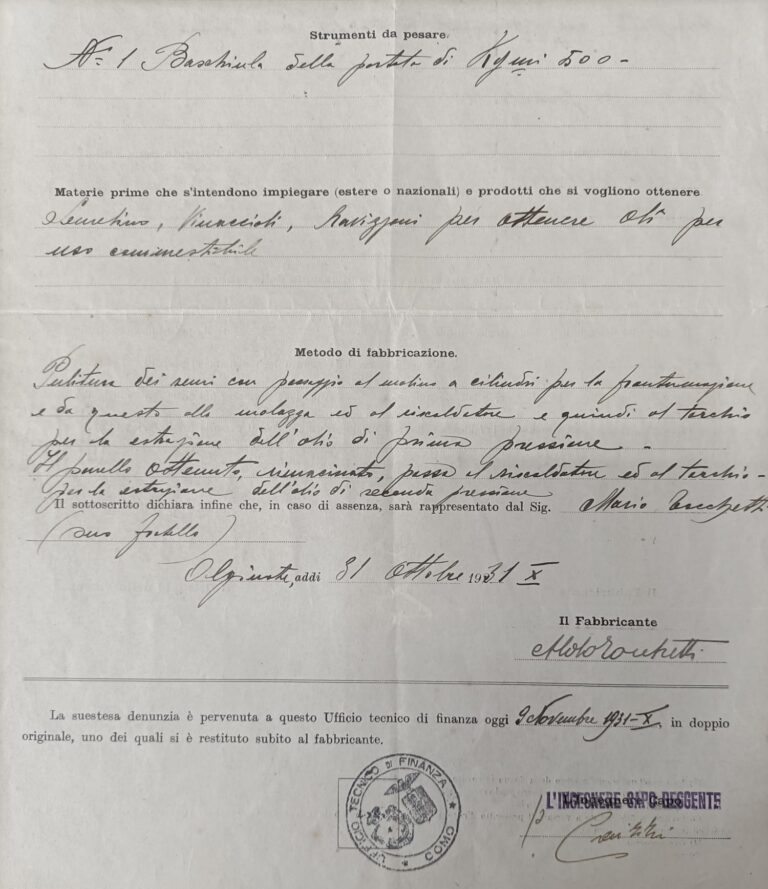 Strumenti da pesare.
N° 1 Baschiula della portata di Kgmi 500 -
Materie prime che s'intendono impiegare (estere o nazionali) e prodotti che si vogliono ottenere
Semelino, Vinaccioli, Ravizzoni per ottenere oli per
uso commestibile
Metodo di fabbricazione.
Pulitura dei semi con passaggio al molino a cilindri per la frantumazione
e da questo alla molazza ed al riscaldatore e quindi al torchio
per la estrazione dell'olio di prima pressione -
Il panello ottenuto, rimacinato, passa al riscaldatore ed al torchio -
per la estrazione dell'olio di seconda pressione
Il sottoscritto dichiara infine che, in caso di assenza, sarà rappresentato dal Sig. Mario
(suo fratello)
Olginate, addì 31 Ottobre 1931 X
Il Fabbricante
Aldo
La suestesa denunzia è pervenuta a questo Ufficio tecnico di finanza oggi 9 Novembre 1931-X, in doppio
originale, uno dei quali si è restituto subito al fabbricante.
UFFICIO TECNICO DI FINANZA * COMO *
L'INGEGNERE CAPO REGGENTE
L'Ingegnere Capo
p